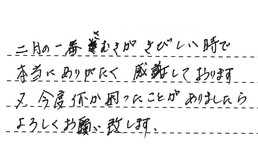 二月の一番さむさがきびしい時で
本当にありがたく感謝しております
又、今度何か困ったことがありましたら
よろしくお願い致します。